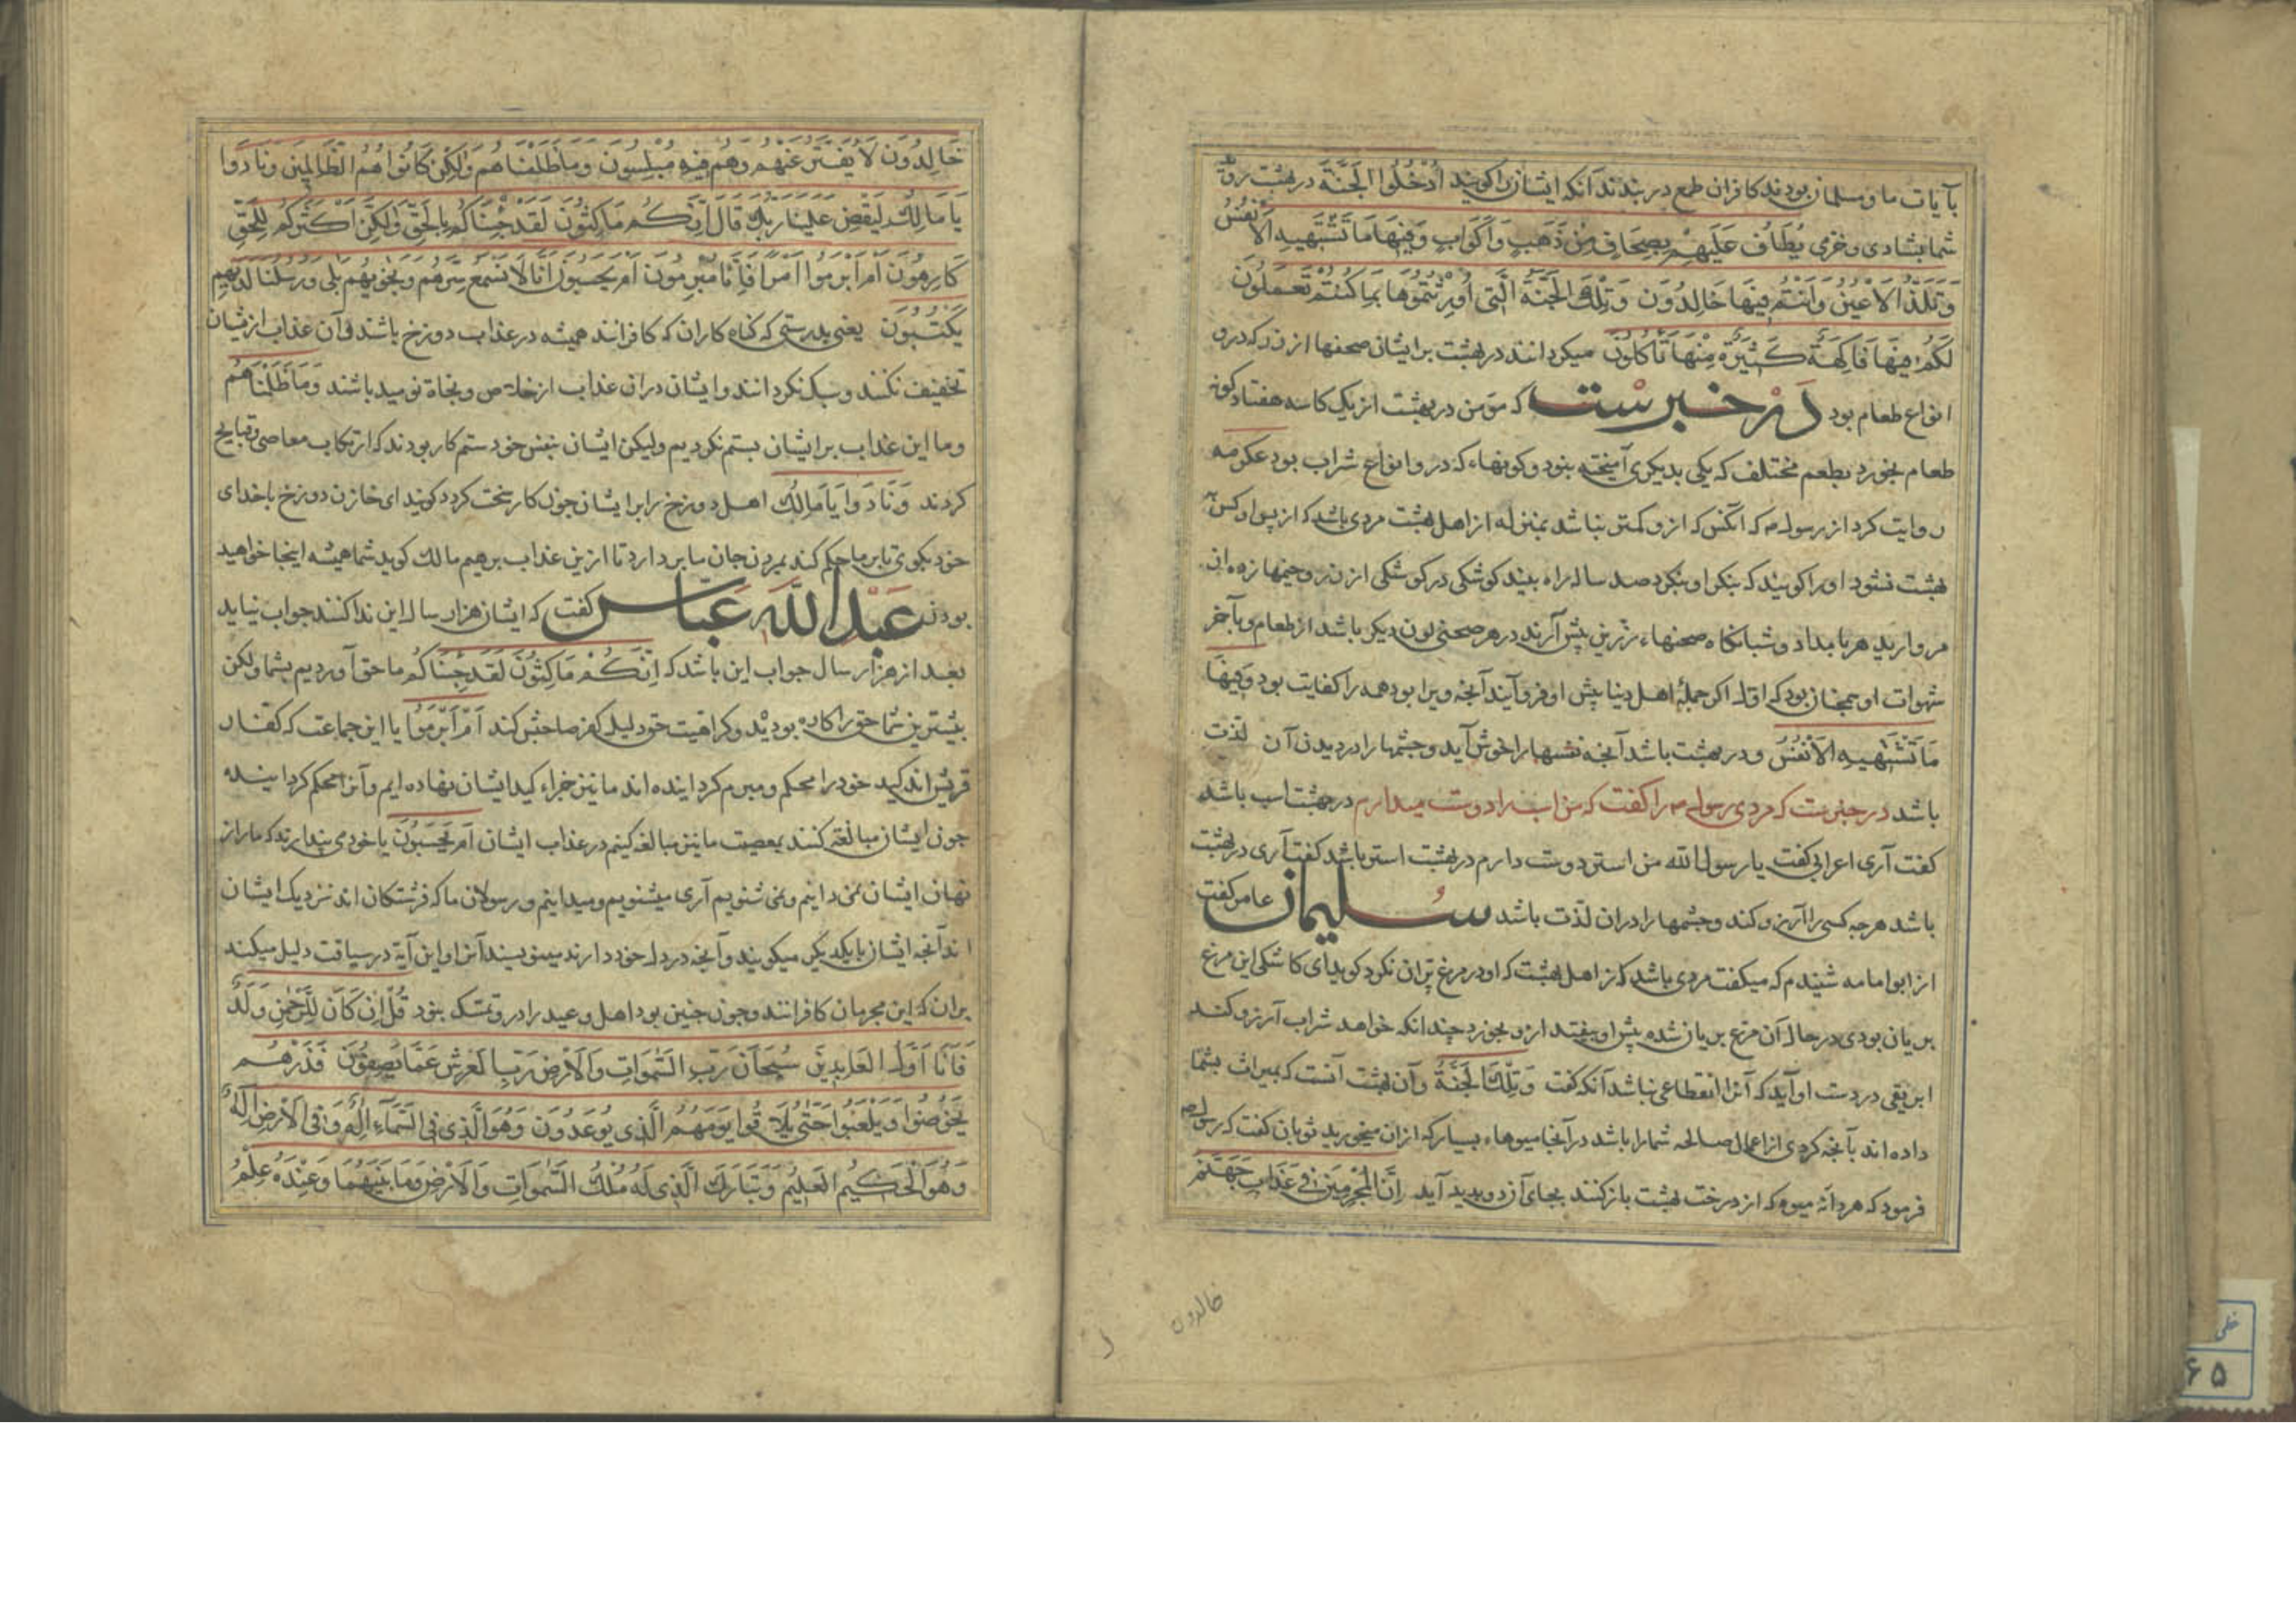 بآیات ما و مسلمان بودند کافران طمع در بندند آنکه ایشان را کویند اُدْخُلُوا الجَنَّةَ در بهشت روید
شما بشادی و خرمی یُطَافُ عَلَیْهِمْ بِصِحَافٍ مِنْ ذَهَبٍ وَاَکْوَابٍ وَفِیهَا مَا تَشْتَهِیهِ الاَنْفُسُ
وَتَلَذُّ الاَعْیُنُ وَاَنْتُمْ فِیهَا خَالِدُونَ وَتِلْكَ الجَنَّةُ الَّتِی اُورِثْتُمُوهَا بِمَا کُنْتُمْ تَعْمَلُونَ
لَکُمْ فِیهَا فَاکِهَةٌ کَثِیرَةٌ مِنْهَا تَأْکُلُونَ میکردانند در بهشت بر ایشان صحنها از زر که درو
انواع طعام بود در خبرست که مؤمن در بهشت از یک کاسه هفتاد کونه
طعام بخورد بطعم مختلف که یکی بدیکری آمیخته نبود و کوبهاء که درو انواع شراب بود عکرمه
روایت کرد از رسول م که آنکس که ازو کمتر نباشد بمنزله از اهل بهشت مردی باشد که از پس او کس
بهشت نشود او را کویند که بنکر او بنکرد صد ساله راه بیند کوشکی در کوشکی از زر و خیمها زده از
مروارید هر بامداد و شبانکاه صحنهاء زرین پیش آرند در هر صحنی لون دیکر باشد از طعام و بآخر
شهوات او همجنان بود که اوله اکر جملهٔ اهل دنیا پیش او فرو آیند آنجه ویرا بود همه را کفایت بود وَفِیهَا
مَا تَشْتَهِیهِ الاَنْفُسُ و در بهشت باشد آنجه نفسها را خوش آید و جشمها را در دیدن آن لذت
باشد در خبرست که مردی رسول م را کفت که من اسب را دوست میدارم در بهشت اسب باشد
کفت آری اعرابی کفت یا رسول الله من استر دوست دارم در بهشت استر باشد کفت آری در بهشت
باشد هرجه کسی را آرزو کند و جشمها را در ان لذت باشد سلیمان عامر کفت
از ابو امامه شنیدم که میکفت مردی باشد که از اهل بهشت که او در مرغ پران نکرد کوید ای کاشکی این مرغ
بریان بودی در حال آن مرغ بریان شده پیش او بیفتد ازو بخورد جندانکه خواهد شراب آرزو کند
ابریقی در دست او آید که آنرا انقطاعی نباشد آنکه کفت وَتِلْكَ الجَنَّةُ و آن بهشت آنست که بمیراث بشما
داده اند بآنجه کردی از اعمال صالحه شما را باشد در آنجا میوهاء بسیار که از ان میخورید ثوبان کفت که رسول م
فرمود که هر دانه میوه که از درخت بهشت باز کنند بجای آن دو پدید آید اِنَّ المُجْرِمِینَ فِی عَذَابِ جَهَنَّمَ
خالدون
خَالِدُونَ لاَ یُفَتَّرُ عَنْهُمْ وَهُمْ فِیهِ مُبْلِسُونَ وَمَا ظَلَمْنَاهُمْ وَلٰکِنْ کَانُوا هُمُ الظَّالِمِینَ وَنَادَوا
یَا مَالِكُ لِیَقْضِ عَلَیْنَا رَبُّكَ قَالَ اِنَّکُمْ مَاکِثُونَ لَقَدْ جِئْنَاکُمْ بِالحَقِّ وَلٰکِنَّ اَکْثَرَکُمْ لِلْحَقِّ
کَارِهُونَ اَمْ اَبْرَمُوا اَمْرًا فَاِنَّا مُبْرِمُونَ اَمْ یَحْسَبُونَ اَنَّا لاَ نَسْمَعُ سِرَّهُمْ وَنَجْوٰیهُمْ بَلٰی وَرُسُلُنَا لَدَیْهِمْ
یَکْتُبُونَ یعنی بدرستی که کناه کاران که کافرانند همیشه در عذاب دوزخ باشند و آن عذاب ازیشان
تخفیف نکنند و سبک نکردانند و ایشان دران عذاب از خلاص و نجاة نومید باشند وَمَا ظَلَمْنَاهُمْ
و ما این عذاب بر ایشان بستم نکردیم ولیکن ایشان بنفس خود ستم کار بودند که ارتکاب معاصی و قبایح
کردند وَنَادَوا یَا مَالِكُ اهل دوزخ را برایشان جون کار سخت کردد کویند ای خازن دوزخ با خدای
خود بکوی تا بر ما حکم کند بمردن جان ما بردارد تا ازین عذاب برهیم مالك کوید شما همیشه اینجا خواهید
بودن عبدالله عباس کفت که ایشان هزار سال این ندا کنند جواب نیاید
بعد از هزار سال جواب این باشد که اِنَّکُمْ مَاکِثُونَ لَقَدْ جِئْنَاکُمْ ما حق آوردیم بشما ولکن
بیشترین شما حق را کاره بودید و کراهیت حق دلیل کفر صاحبش کند اَمْ اَبْرَمُوا یا این جماعت که کفار
قریش اند کید خود را محکم و مبرم کردانیده اند ما نیز جزاء کید ایشان نهاده ایم و آنرا محکم کردانیده
جون ایشان مبالغه کنند بمعصیت ما نیز مبالغه کنیم در عذاب ایشان اَمْ یَحْسَبُونَ یا خود می پندارند که ما راز
نهان ایشان نمی دانیم و نمی شنویم آری میشنویم و میدانیم و رسولان ما که فرشتکان اند نزدیک ایشان
اند آنجه ایشان با یکدیکر میکویند و آنجه در دل خود دارند مینویسند آنرا و این آیة در سیاقت دلیل میکند
بران که این مجرمان کافرانند و جون جنین بود اهل وعید را درو تمسک نبود قُلْ اِنْ کَانَ لِلرَّحْمٰنِ وَلَدٌ
فَاَنَا اَوَّلُ العَابِدِینَ سُبْحَانَ رَبِّ السَّمٰوَاتِ وَالاَرْضِ رَبِّ العَرْشِ عَمَّا یَصِفُونَ فَذَرْهُمْ
یَخُوضُوا وَیَلْعَبُوا حَتّٰی یُلاَقُوا یَوْمَهُمُ الَّذِی یُوعَدُونَ وَهُوَ الَّذِی فِی السَّمَاءِ اِلٰهٌ وَفِی الاَرْضِ اِلٰهٌ
وَهُوَ الْحَکِیمُ العَلِیمُ وَتَبَارَكَ الَّذِی لَهُ مُلْكُ السَّمٰوَاتِ وَالاَرْضِ وَمَا بَیْنَهُمَا وَعِنْدَهُ عِلْمُ
خطی
۶۵